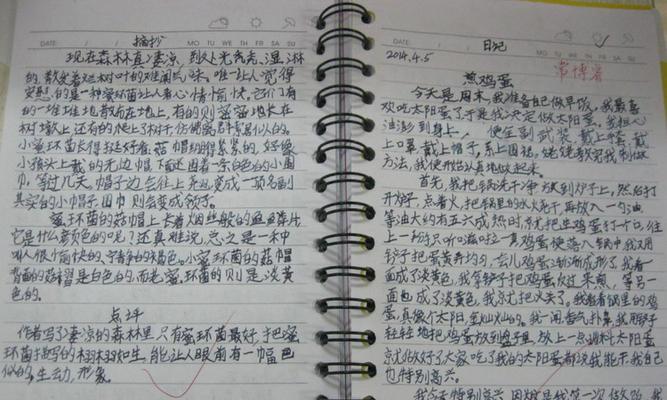 摘抄
DATE: MO TU WE TH FR SA SU
现在森林真凄凉,到处光秃秃、湿淋淋
的,散发着烂树叶的难闻气味。唯一让人觉得
安慰的是一种蜜环菌让人看心情愉快,它们有
的一堆堆地散布在地上,有的则蜜蜜地长在
树墩上,还有的爬上了树干,仿佛离群索居似的。
小蜜环菌长得挺好看。菇帽绷得紧紧的,好像
小孩头上戴的无边帽,下面还围着一条白色的小围
巾。等过几天,帽子边会往上翘,变成一顶名副
其实的小帽子,围巾则会变成领子。
蜜环菌的菇帽上长着烟丝般的鱼鱼鳞片,
它是什么颜色的呢?还真难说,总之是一种
叫人很愉快的、宁静的褐色。小蜜环菌的菇帽
背面的菇褶是白色的,而老蜜环菌的则是淡黄
色的。
点评
作者写了凄凉的森林里,只有蜜环菌最好,把蜜
环菌描写的栩栩如生,能让人眼前有一幅画
似的,生动,形象。
日记
DATE: MO TU WE TH FR SA SU
2014.4.5
常博睿
煎鸡蛋
今天是周末,我准备自己做早饭,我最喜
欢吃太阳蛋了,于是我决定做太阳蛋。我担心
油澎到身上,便全副武装,戴上手套,戴
上口罩,戴上帽子,系上围裙。姥姥教完我制做
方法,我便开始认真地做起来。
首先,我把锅洗干净放到炉子上,然后打
开炉子,点着火,把锅里的水火干,再放入一勺油
等油大约有五六成热时,就把生鸡蛋打一个口,往
上一掰只听"滋"的一声鸡蛋便落入锅中,我又用
铲子把蛋黄弄均匀,会儿鸡蛋渐渐成形了,我看一
面成了淡黄色,我拿铲子把鸡蛋放过来煎,等另一
面也成了淡黄色,我就把火关了。我看着锅里的鸡
蛋,真像个太阳,金灿灿的。我一闻香气扑鼻,我用铲子
轻轻地把鸡蛋放到盘子里,放上一点调料太阳蛋
就做好了,大家吃了我的太阳蛋都说我能干,我自己
也特别高兴。
我今天特别高兴,因为这是我第一次做饭,我